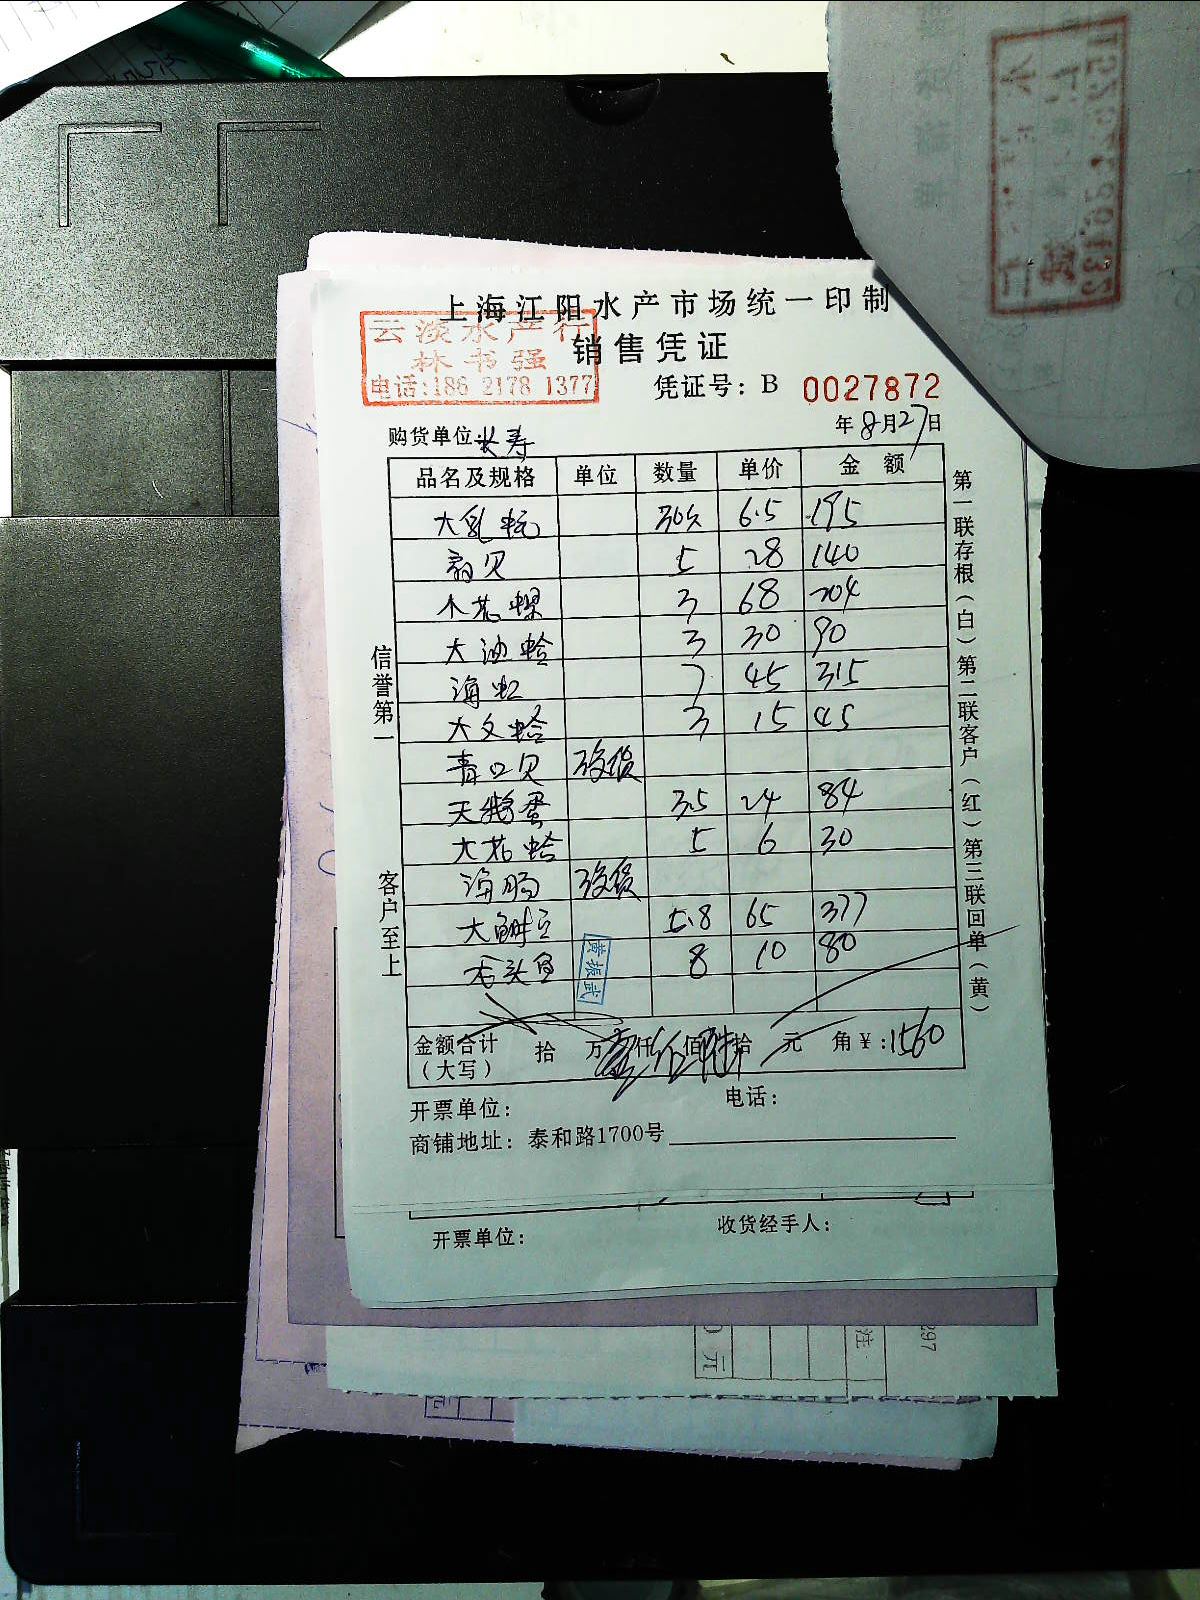 上海江阳水产市场统一印制
云淡水产行
林书强
电话:186 2178 1377
销售凭证
凭证号: B 0027872
购货单位 长寿 年8月27日
品名及规格 单位 数量 单价 金额
大乳蚝 30只 6.5 195
扇贝 5 28 140
木花螺 3 68 204
大油蛤 3 30 90
海虹 7 45 315
大文蛤 3 15 45
青口贝 没货
天鹅蛋 3.5 24 84
大花蛤 5 6 30
海肠 没货
大鲥豆 5.8 65 377
舌头鱼 8 10 80
黄振武
金额合计 拾 万壹仟伍佰陆拾 元 角¥:1560
(大写)
开票单位: 电话:
商铺地址: 泰和路1700号
信誉第一
客户至上
第一联存根(白)第二联客户(红)第三联回单(黄)
开票单位: 收货经手人: